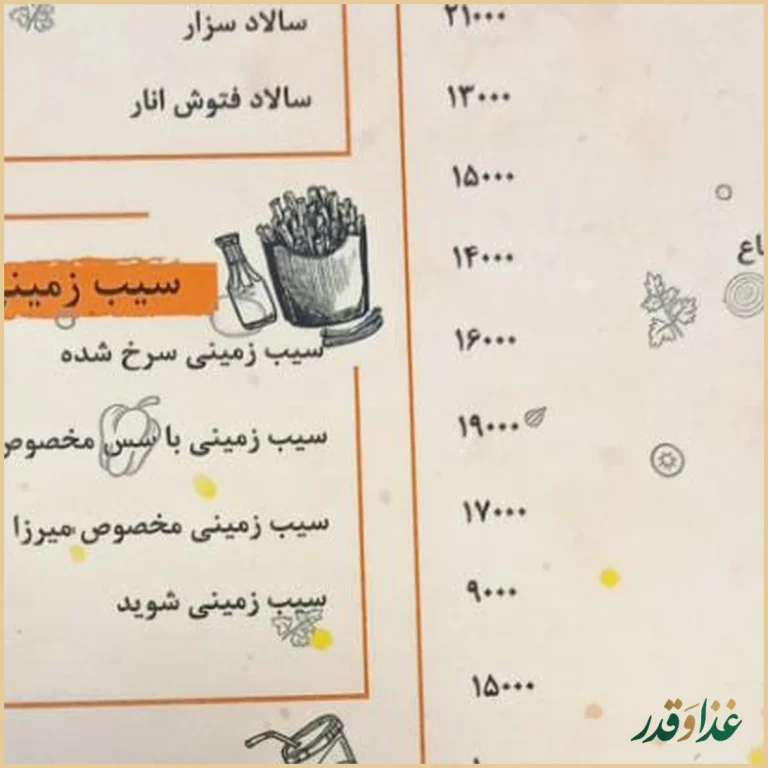 سالاد سزار
سالاد فتوش انار
سیب زمینی
سیب زمینی سرخ شده
سیب زمینی با سس مخصوص
سیب زمینی مخصوص میرزا
سیب زمینی شوید
۲۱۰۰۰
۱۳۰۰۰
۱۵۰۰۰
۱۴۰۰۰
۱۶۰۰۰
۱۹۰۰۰
۱۷۰۰۰
۹۰۰۰
۱۵۰۰۰
غذا و قدر